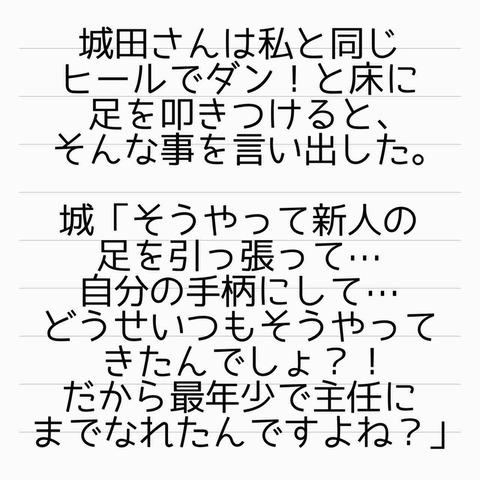 城田さんは私と同じ
ヒールでダン！と床に
足を叩きつけると、
そんな事を言い出した。
城「そうやって新人の
足を引っ張って…
自分の手柄にして…
どうせいつもそうやって
きたんでしょ？！
だから最年少で主任に
までなれたんですよね？」